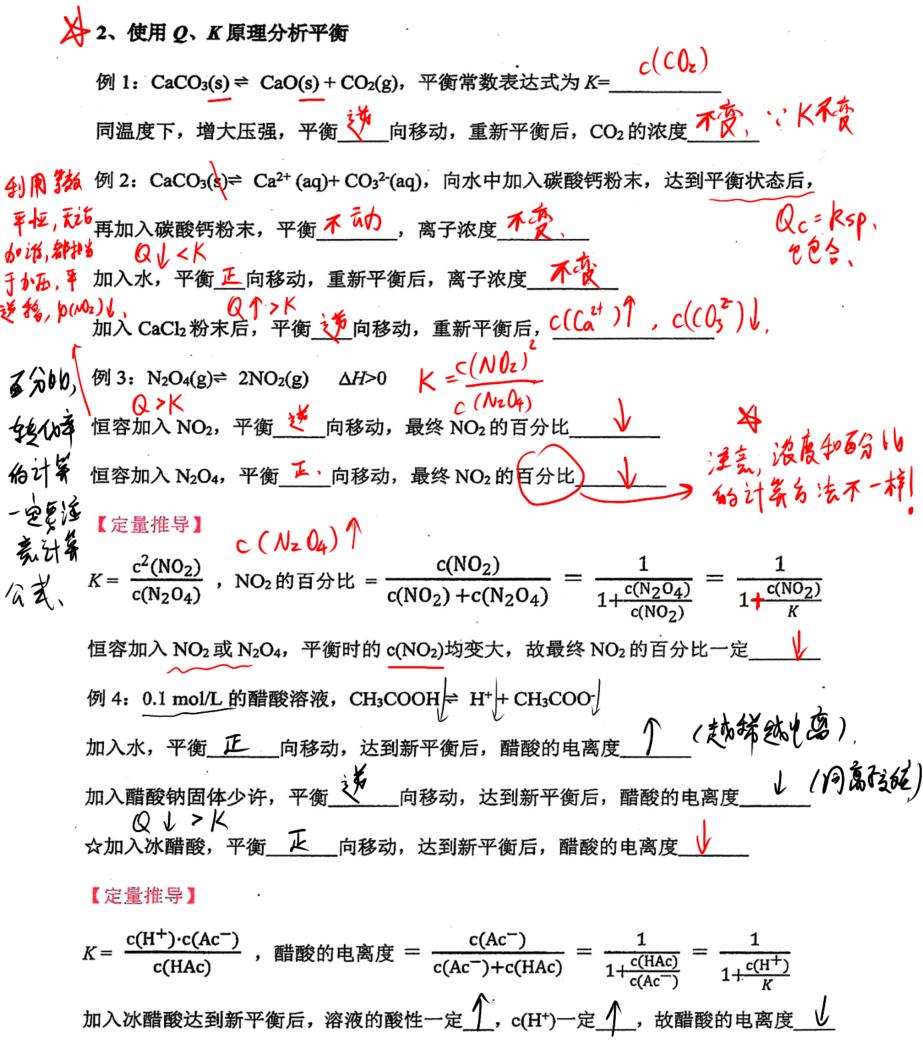 2、使用 Q、K 原理分析平衡
例 1：CaCO₃(s) ⇌ CaO(s) + CO₂(g)，平衡常数表达式为 K= c(CO₂)
同温度下，增大压强，平衡 逆 向移动，重新平衡后，CO₂ 的浓度 不变、∵ K不变
例 2：CaCO₃(s) ⇌ Ca²⁺ (aq)+ CO₃²⁻(aq)，向水中加入碳酸钙粉末，达到平衡状态后，
Qc = Ksp、
已包合、
再加入碳酸钙粉末，平衡 不动 ，离子浓度 不变、
Q↓<K
加入水，平衡 正 向移动，重新平衡后，离子浓度 不变
Q↑>K
加入 CaCl₂ 粉末后，平衡 逆 向移动，重新平衡后， c(Ca²⁺)↑ ，c(CO₃²⁻)↓，
利用等效
平恒，无论
加谁，都相当
于加压，平
逆移，p(NO₂)↓、
例 3：N₂O₄(g) ⇌ 2NO₂(g) ΔH>0 K = c(NO₂)²/c(N₂O₄)
Q>K
恒容加入 NO₂，平衡 逆 向移动，最终 NO₂ 的百分比 ↓
恒容加入 N₂O₄，平衡 正、 向移动，最终 NO₂ 的百分比 ↓
注意，浓度和百分比
的计算方法不一样！
百分比，
转化率
的计算
一定要注
意计算
公式、
【定量推导】
c(N₂O₄)↑
K = c²(NO₂)/c(N₂O₄) ，NO₂ 的百分比 = c(NO₂)/(c(NO₂)+c(N₂O₄)) = 1/(1+c(N₂O₄)/c(NO₂)) = 1/(1+c(NO₂)/K)
恒容加入 NO₂ 或 N₂O₄，平衡时的 c(NO₂)均变大，故最终 NO₂ 的百分比一定 ↓
例 4：0.1 mol/L 的醋酸溶液，CH₃COOH↓ ⇌ H⁺↓ + CH₃COO⁻↓
加入水，平衡 正 向移动，达到新平衡后，醋酸的电离度 ↑ （越稀越电离），
加入醋酸钠固体少许，平衡 逆 向移动，达到新平衡后，醋酸的电离度 ↓ （同离子效应）
Q↓>K
☆加入冰醋酸，平衡 正 向移动，达到新平衡后，醋酸的电离度 ↓
【定量推导】
K = c(H⁺)·c(Ac⁻)/c(HAc) ，醋酸的电离度 = c(Ac⁻)/(c(Ac⁻)+c(HAc)) = 1/(1+c(HAc)/c(Ac⁻)) = 1/(1+c(H⁺)/K)
加入冰醋酸达到新平衡后，溶液的酸性一定 ↑ ，c(H⁺)一定 ↑ ，故醋酸的电离度 ↓